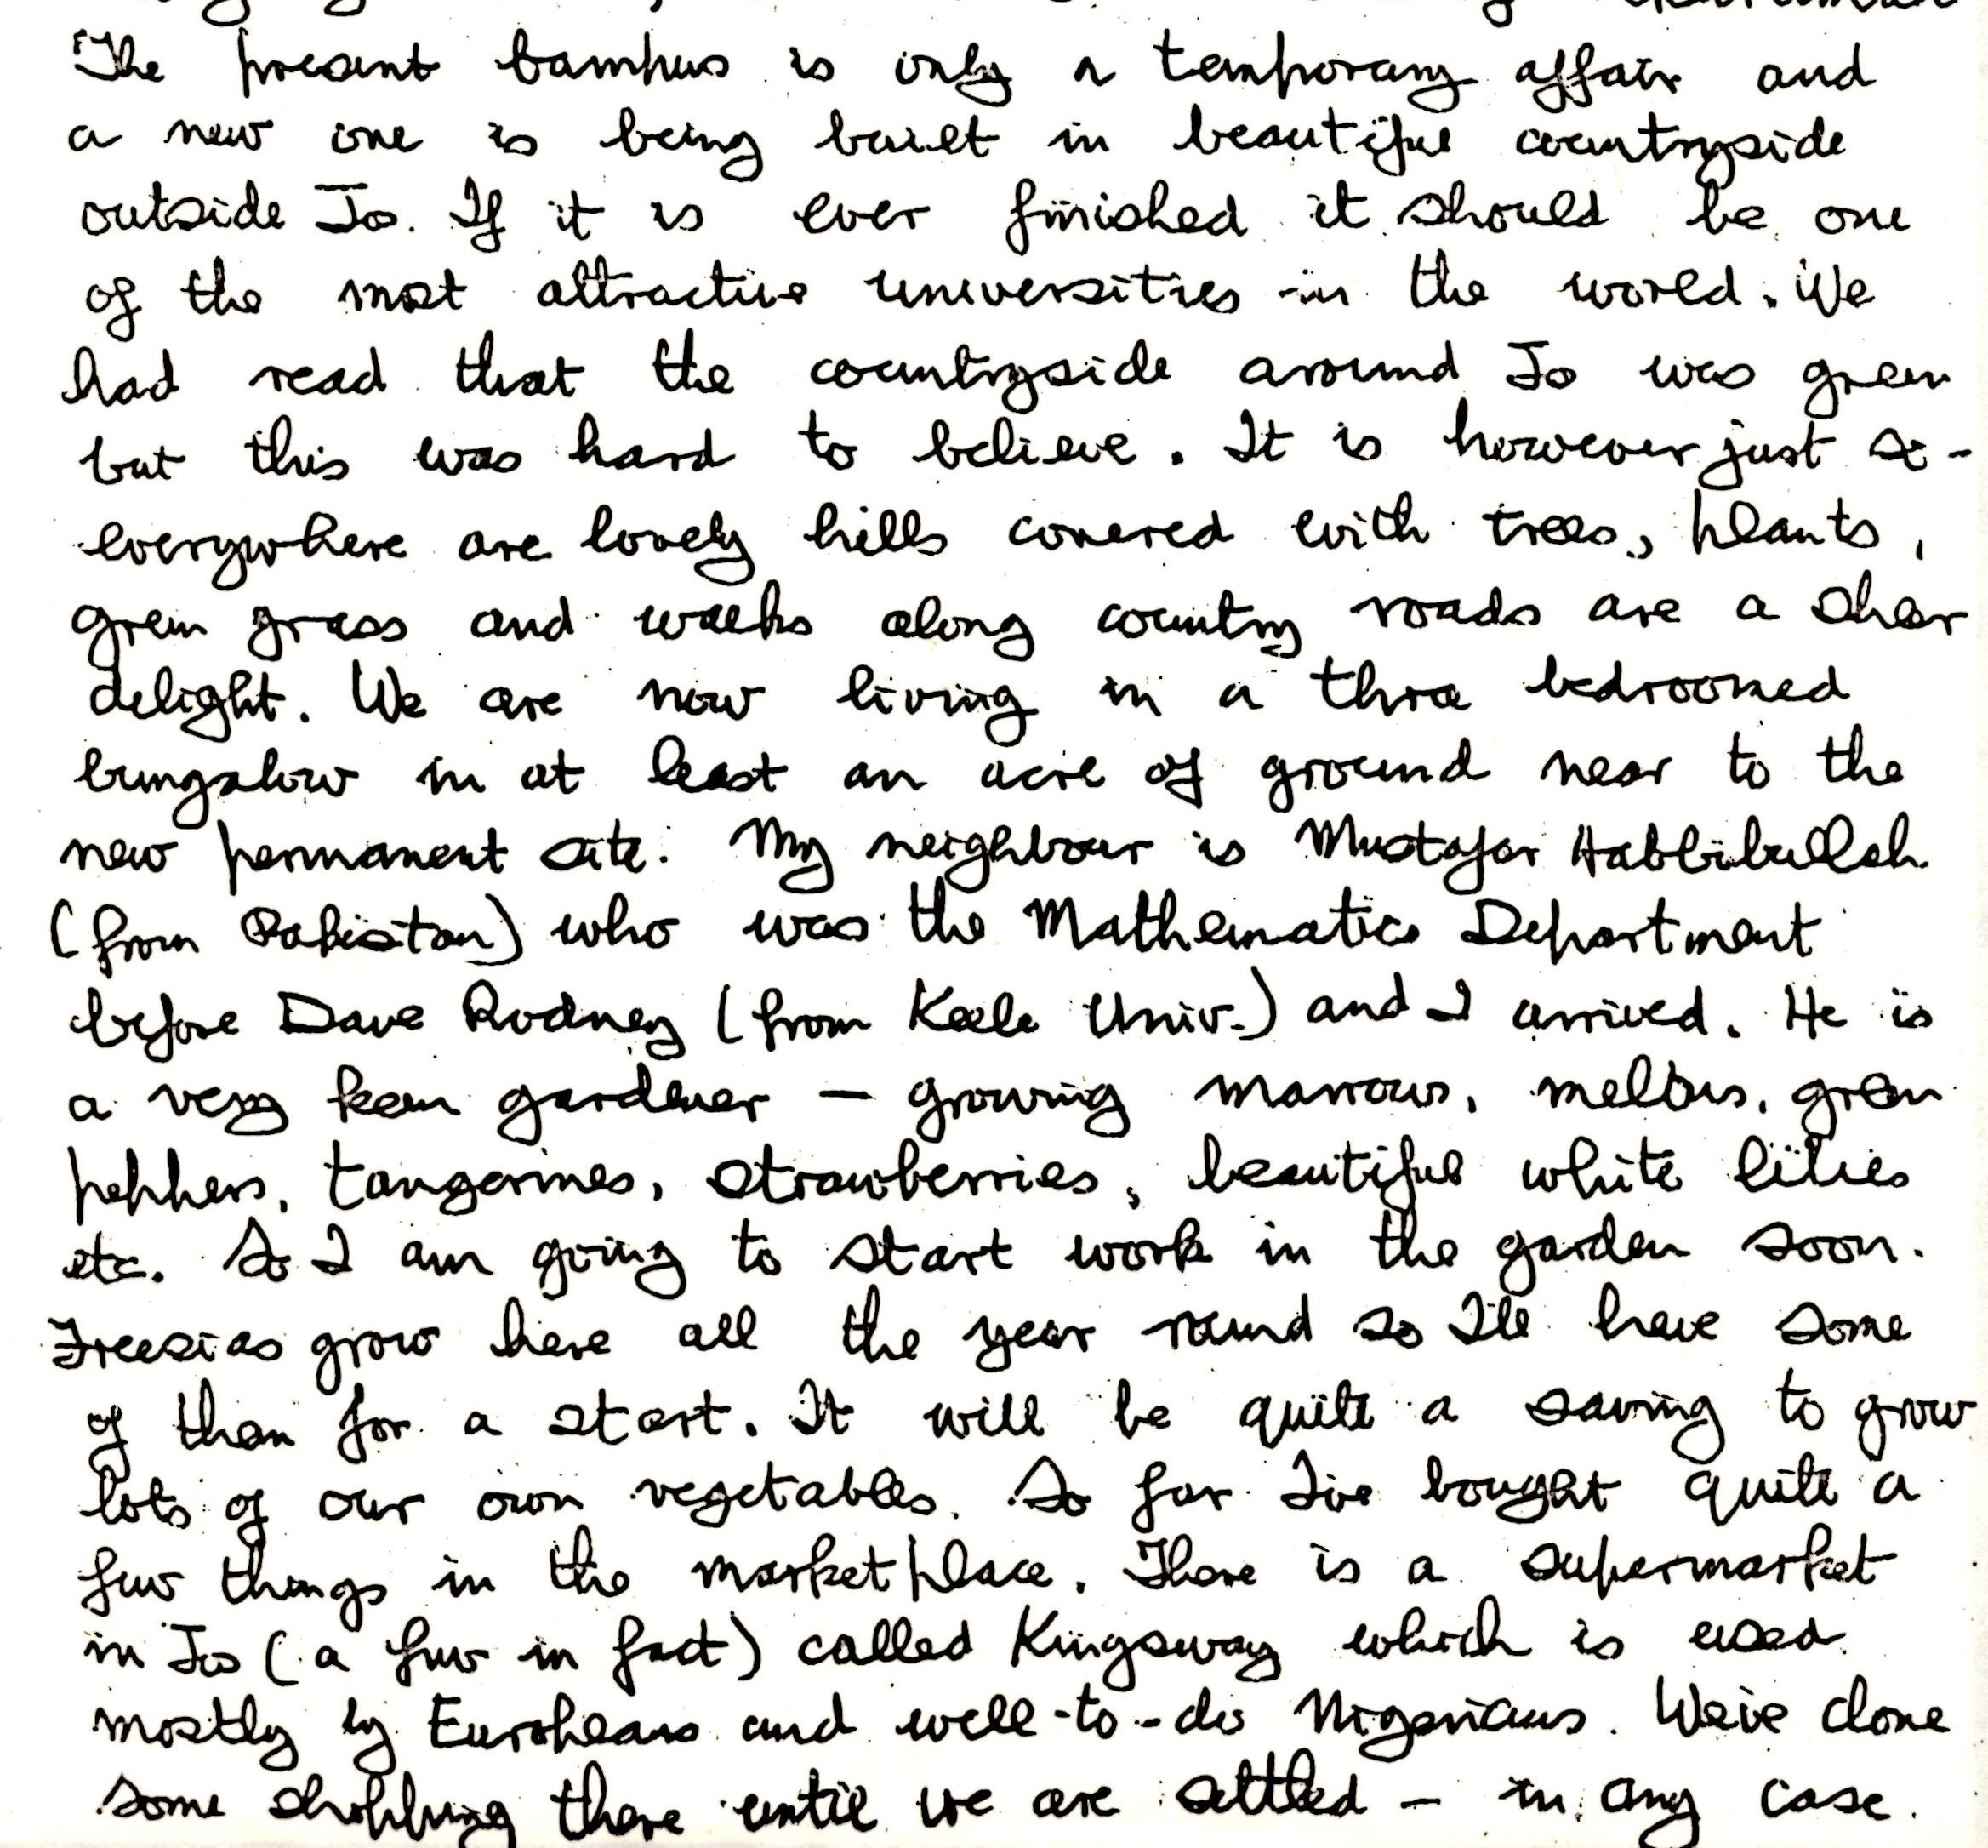 The present campus is only a temporary affair and
a new one is being built in beautiful countryside
outside Jos. If it is ever finished it should be one
of the most attractive universities in the world. We
had read that the countryside around Jos was green
but this was hard to believe. It is however just so -
everywhere are lovely hills covered with trees, plants,
green grass and walks along country roads are a sheer
delight. We are now living in a three bedroomed
bungalow in at least an acre of ground near to the
new permanent site. My neighbour is Mustafar Habbibullah
(from Pakistan) who was the Mathematics Department
before Dave Rodney (from Keele Univ.) and I arrived. He is
a very keen gardener – growing marrows, mellons, green
peppers, tangerines, strawberries, beautiful white lilies
etc. So I am going to start work in the garden soon.
Freesias grow here all the year round so I'll have some
of them for a start. It will be quite a saving to grow
lots of our own vegetables. So far I've bought quite a
few things in the market place. There is a supermarket
in Jos (a few in fact) called Kingsway which is used
mostly by Europeans and well-to-do Nigerians. We've done
some shopping there until we are settled – in any case